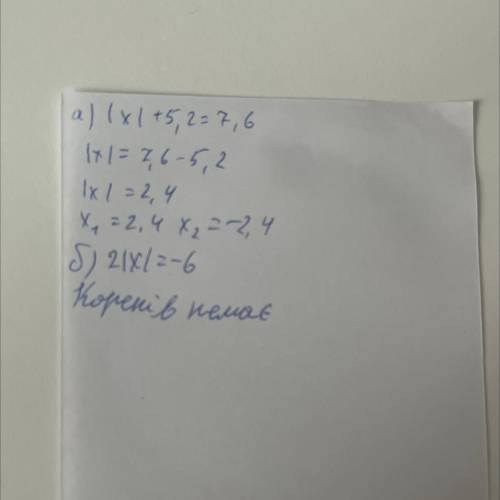 а) |x| + 5,2 = 7,6
|x| = 7,6 - 5,2
|x| = 2,4
x₁ = 2,4 x₂ = -2,4
б) 2|x| = -6
Коренів немає